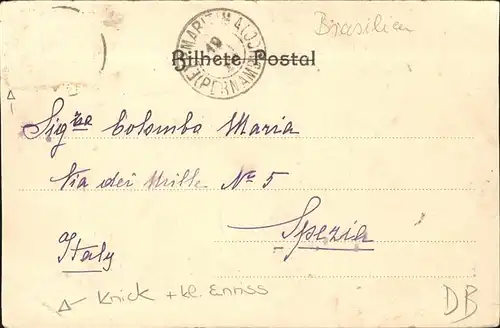 Brasilien
MARITIMA
19
(PERNAMB
Bilhete Postal
Sig.ra Colomba Maria
Via dei Mille No 5
Spezia
Italy
Knick + kl. Einriss
DB